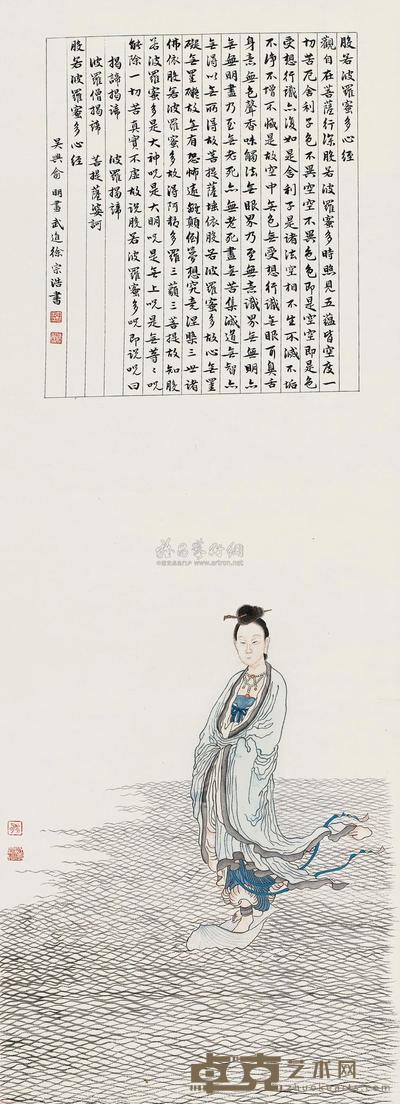 般若波羅蜜多心经
觀自在菩薩行深般若波羅蜜多時照見五蕴皆空度一
切苦厄舍利子色不異空空不異色色即是空空即是色
受想行識亦復如是舍利子是諸法空相不生不滅不垢
不淨不增不減是故空中無色無受想行識無眼耳鼻舌
身意無色聲香味觸法無眼界乃至無意識界無無明亦
無無明盡乃至無老死亦無老死盡無苦集滅道無智亦
無得以無所得故菩提薩埵依般若波羅蜜多故心無罣
礙無罣礙故無有恐怖遠離顛倒夢想究竟涅槃三世諸
佛依般若波羅蜜多故得阿耨多羅三藐三菩提故知般
若波羅蜜多是大神咒是大明咒是無上咒是無等等咒
能除一切苦真實不虛故說般若波羅蜜多咒即說咒曰
揭諦揭諦 波羅揭諦
波羅僧揭諦 菩提薩婆訶
般若波羅蜜多心經
吴興俞明畫武進徐宗浩書
卓克艺术网
www.zhuokearts.com